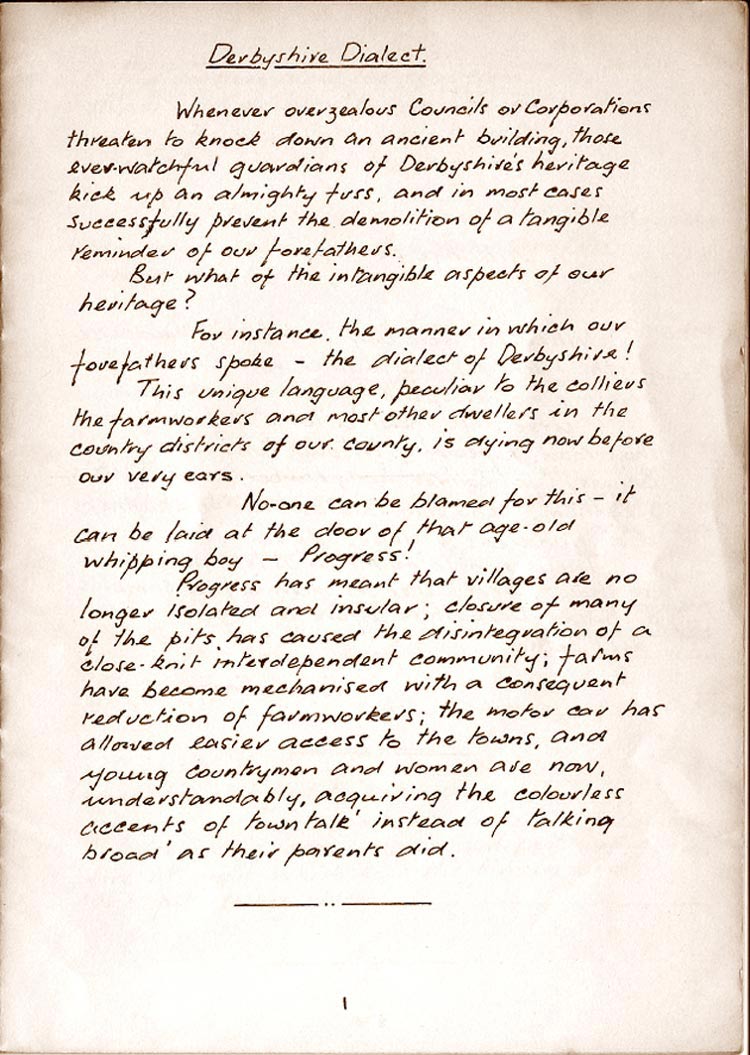 Derbyshire Dialect.
Whenever overzealous Councils or Corporations
threaten to knock down an ancient building, those
ever-watchful guardians of Derbyshire's heritage
kick up an almighty fuss, and in most cases
successfully prevent the demolition of a tangible
reminder of our forefathers.
But what of the intangible aspects of our
heritage?
For instance, the manner in which our
forefathers spoke - the dialect of Derbyshire!
This unique language, peculiar to the colliers
the farmworkers and most other dwellers in the
country districts of our county, is dying now before
our very ears.
No-one can be blamed for this - it
can be laid at the door of that age-old
whipping boy - Progress!
Progress has meant that villages are no
longer isolated and insular; closure of many
of the pits has caused the disintegration of a
close-knit interdependent community; farms
have become mechanised with a consequent
reduction of farmworkers; the motor car has
allowed easier access to the towns, and
young countrymen and women are now,
understandably, acquiring the colourless
accents of 'town talk' instead of 'talking
broad' as their parents did.
1